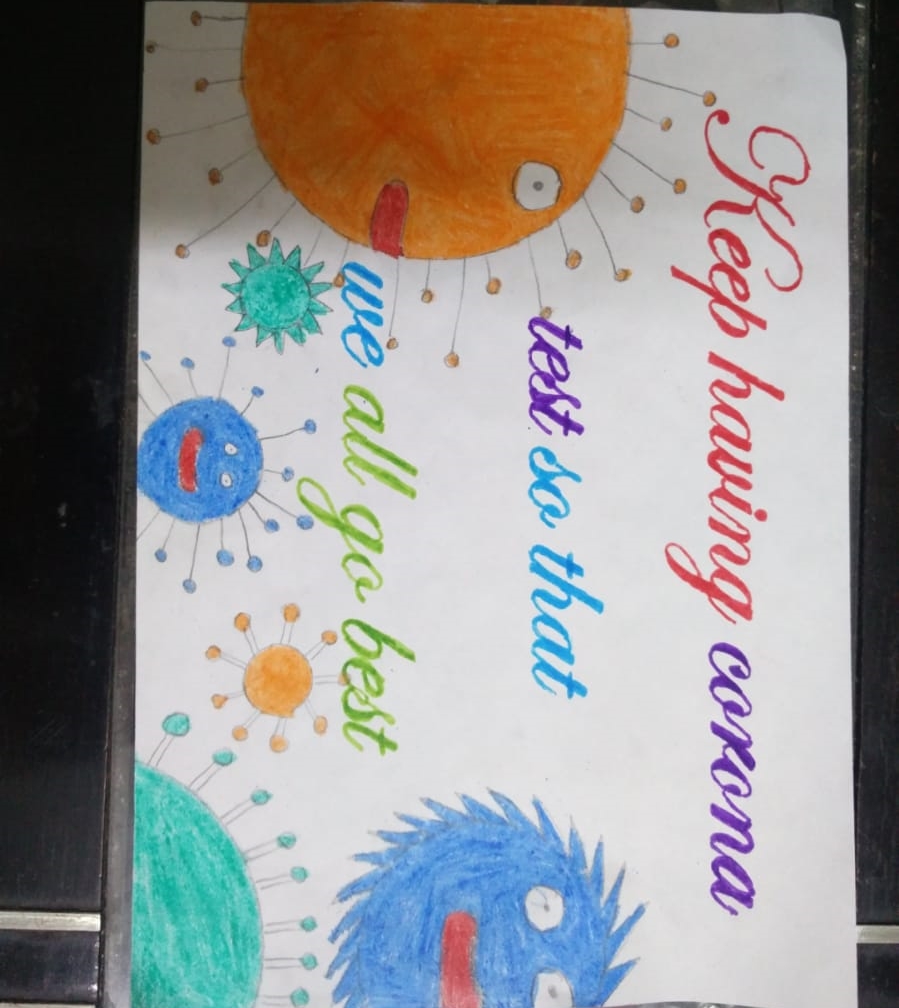 Keep having corona
test so that
we all go best